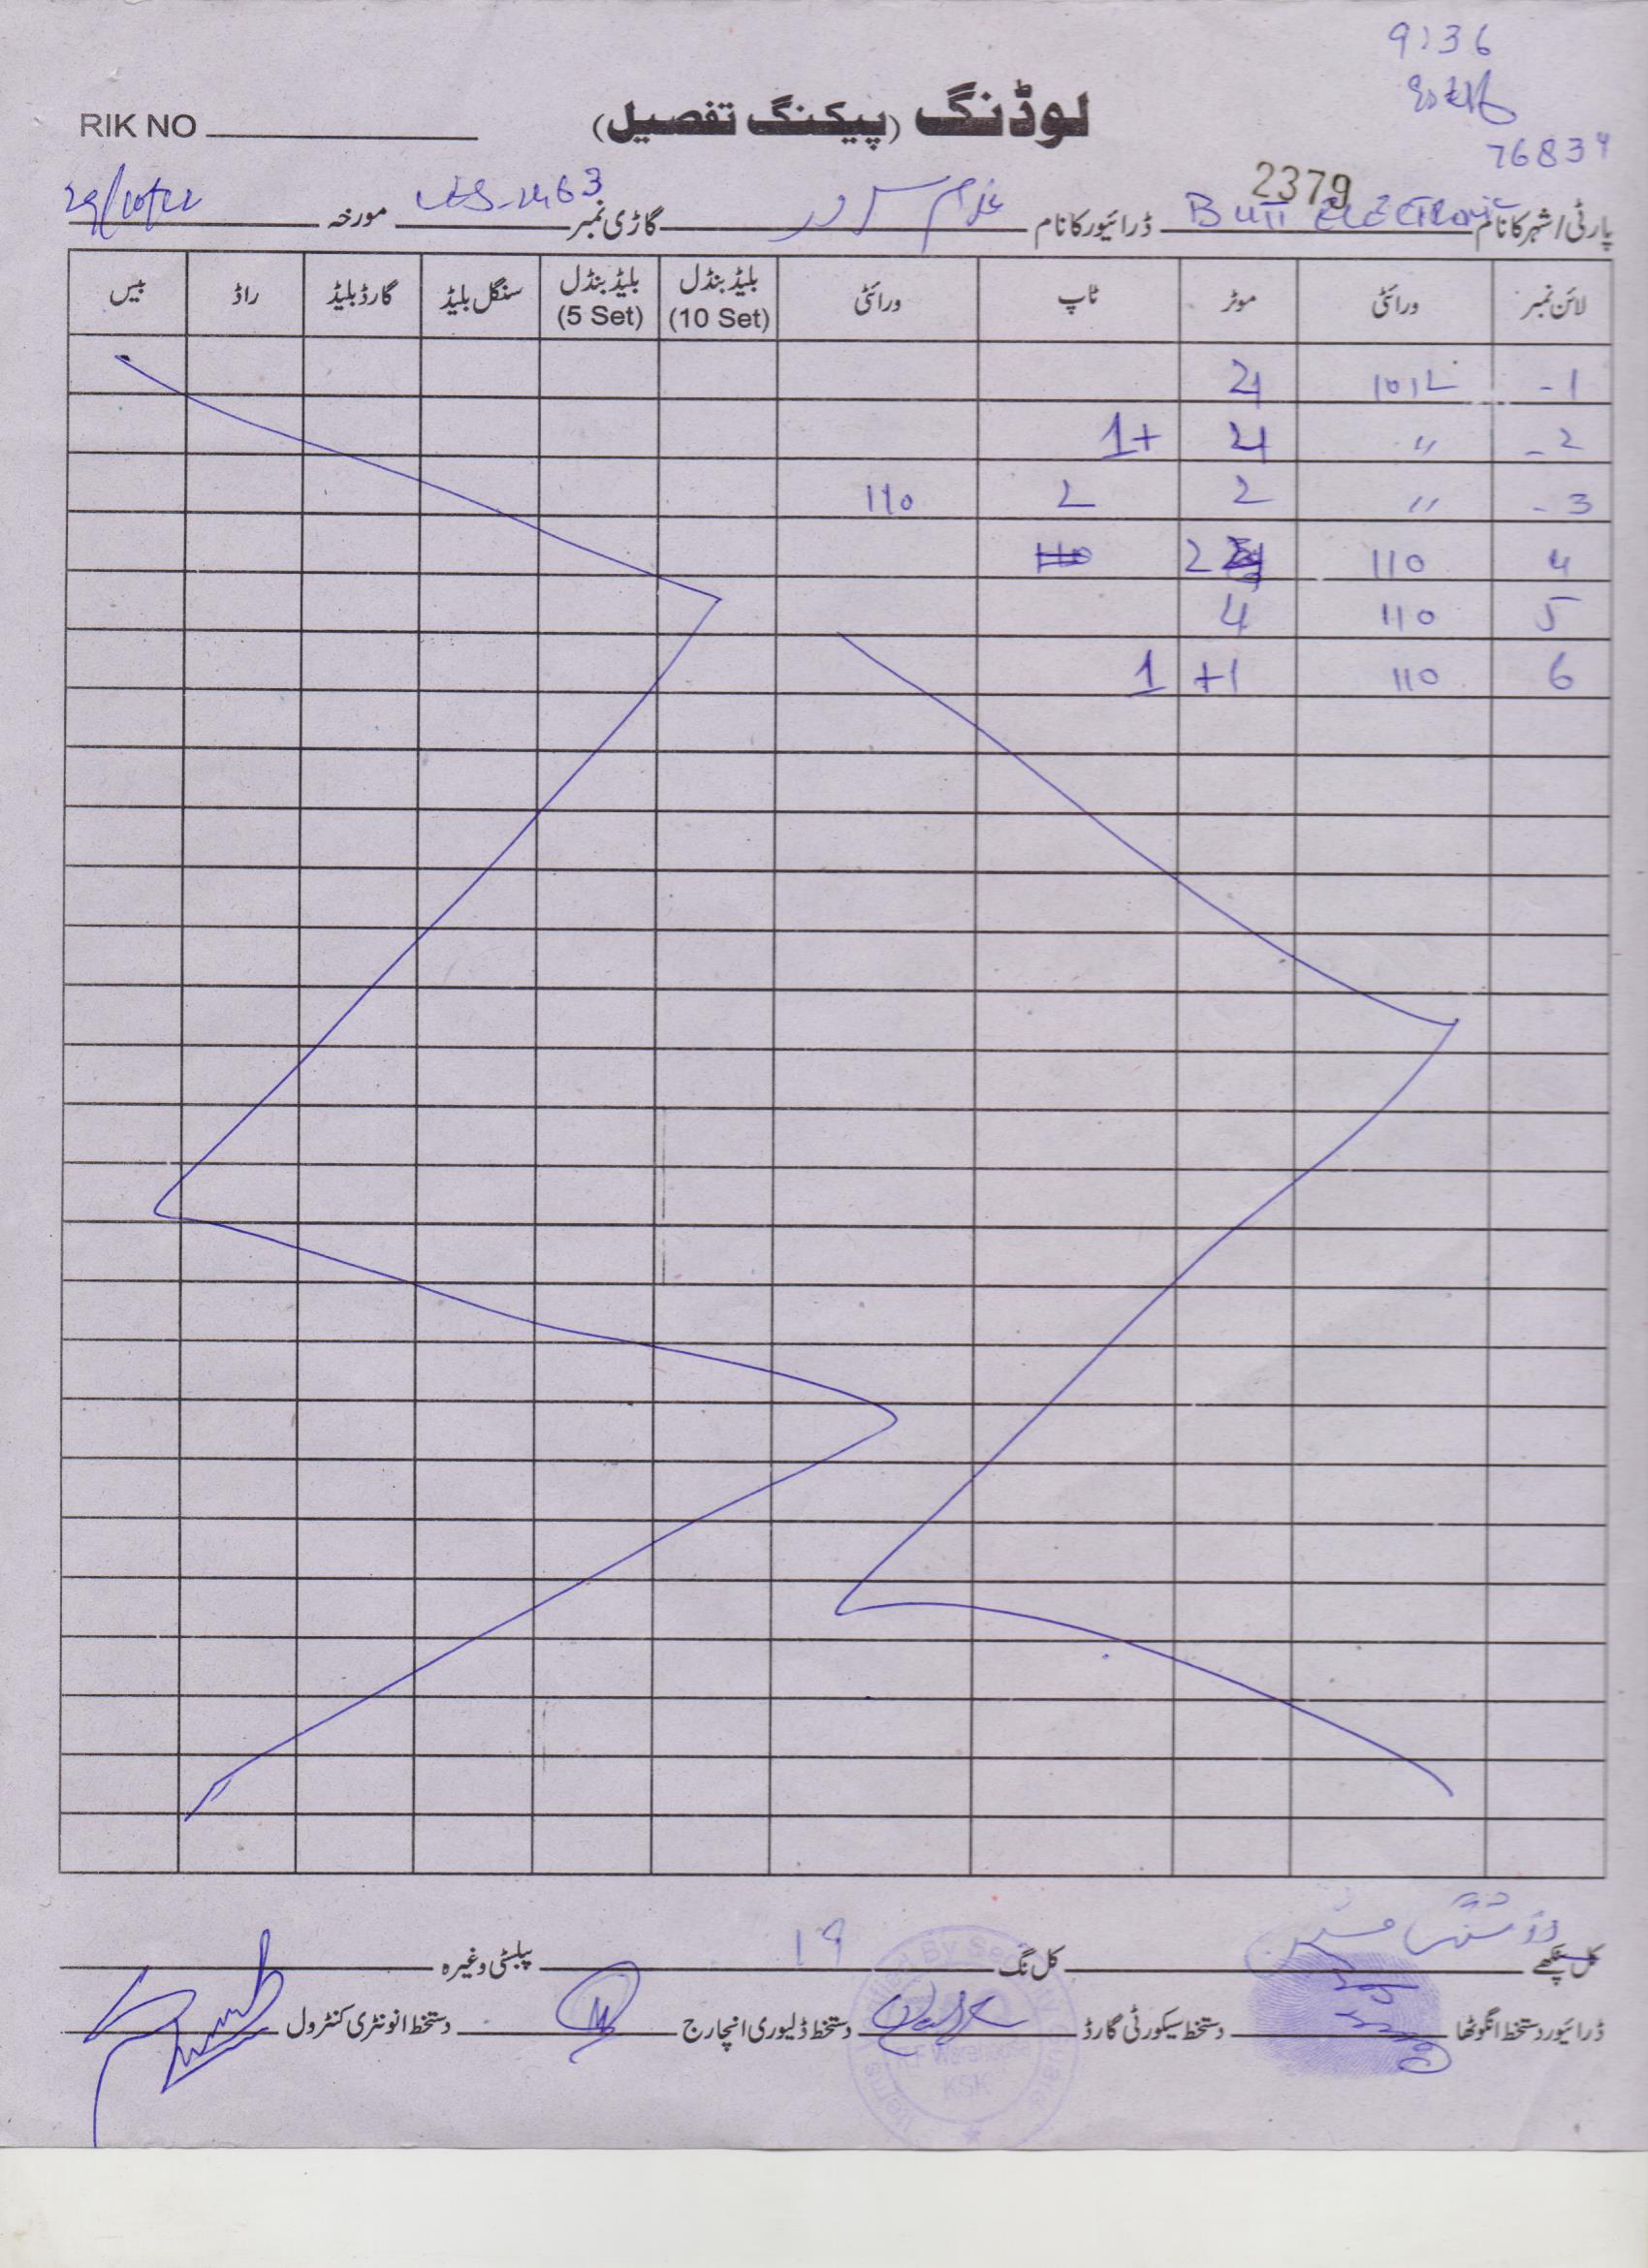 9236
76834
RIK NO لوڈنگ (پیکنگ تفصیل)
2379
پارٹی/شہر کا نام Butt ELECTRONIC ڈرائیور کا نام غلام سرور گاڑی نمبر LES-2463 مورخہ
لائن نمبر ورائٹی موٹر ٹاپ ورائٹی بلیڈ بنڈل (10 Set) بلیڈ بنڈل (5 Set) سنگل بلیڈ گارڈ بلیڈ راڈ بیس
-1 1012 4
-2 " 4 1+
-3 " 2 2 110
4 110 2
5 110 4
6 110 +1 1
کل پنکھے کل نگ 19 پبلٹی وغیرہ
ڈرائیور دستخط انگوٹھا دستخط سیکورٹی گارڈ دستخط ڈلیوری انچارج دستخط انونٹری کنٹرول
KSK